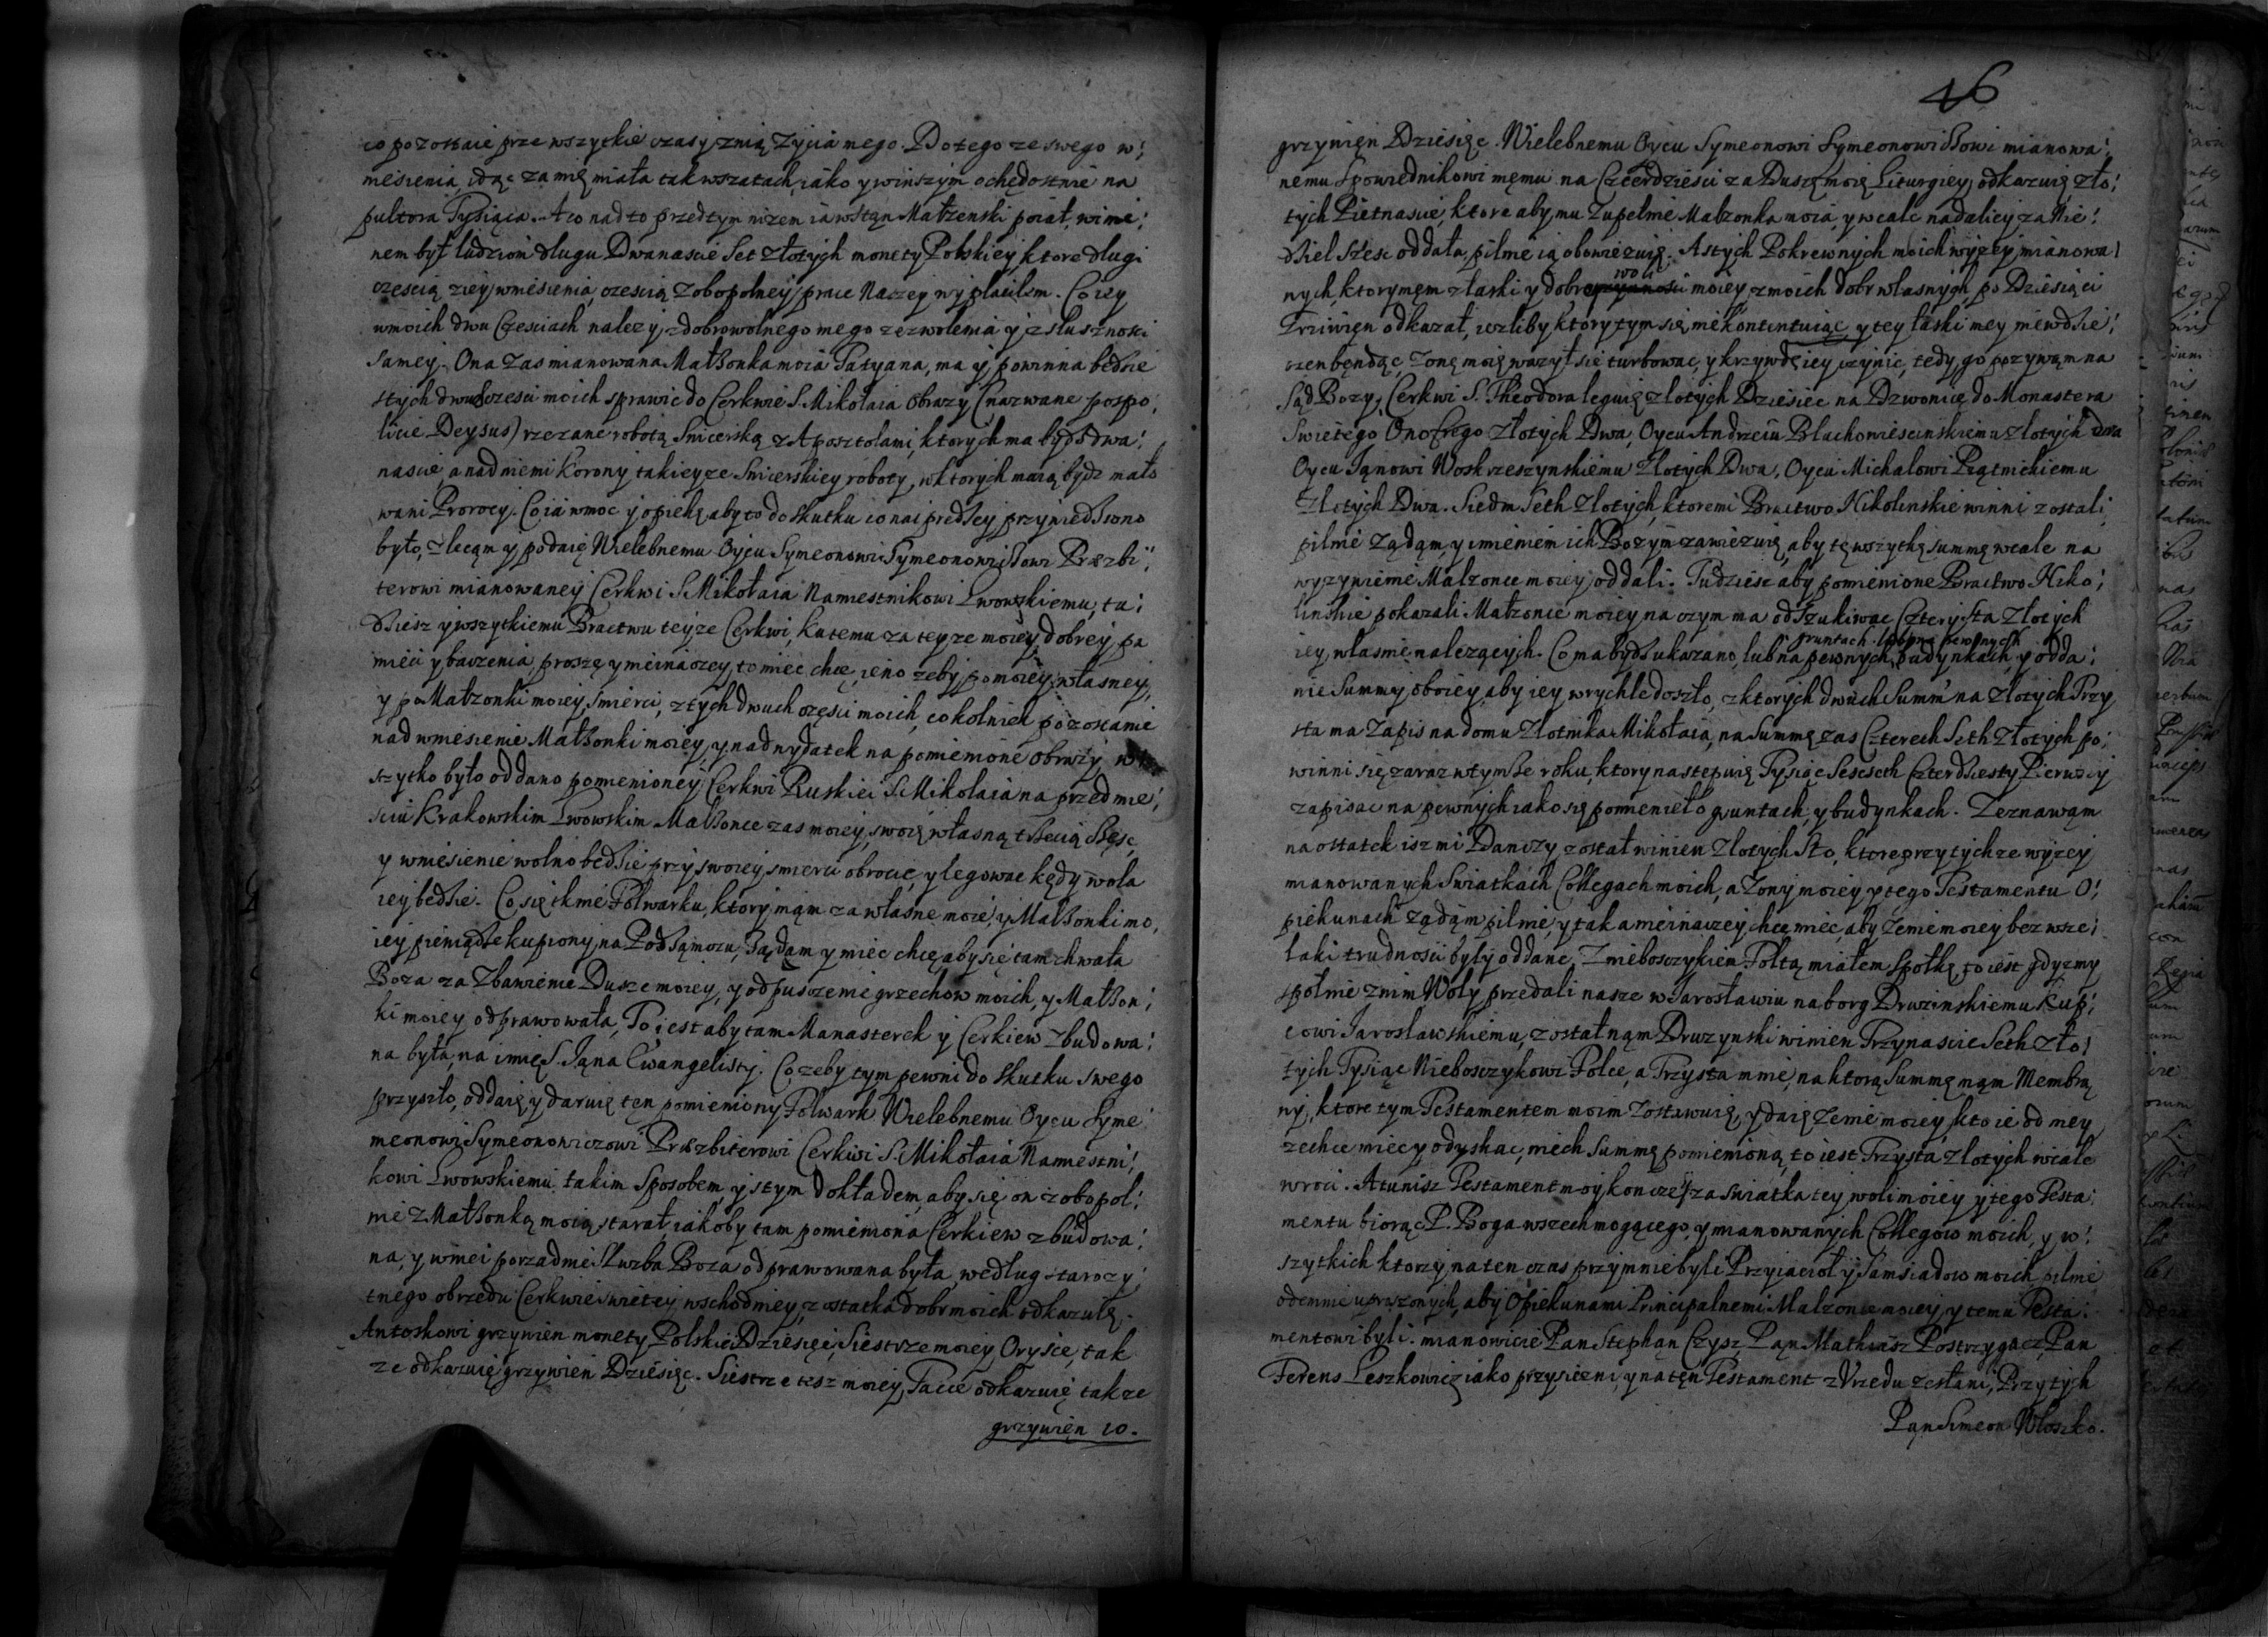 co pozostaie prze wszytkie czasy znią Zycia mego. Do tego ze swego w:
niesienia, idąc za mię miała tak wszatach, iako y winszym ochędostwie na
pułtora Tysiąca. A co nad to przedtym nizem ia wstąn Małzenski poiął, wini:
nem był ludziom długu Dwanascie Set Złotych monety Polskiey, ktore długi
częscią ziey wniesienia, częscią z obopolney prace Naszey wypłaciłem. Co iey
wmoich dwu Częsciach nalezy, z dobrowolnego mego zezwolenia y z słusznosci
samey. Ona zas mianowana Małżonka moia Tatyana, ma y powinna bedzie
stych dwuch częsci moich sprawic do Cerkwie S. Mikołaia Obrazy (nazwane pospo:
licie Deysus) rzezane robotą Snicerską z Aposztołami, ktorych ma bydz dwa:
nascie, a nad niemi Korony takieyze Snicerskiey roboty, w ktorych maią bydz malo
wani Prorocy. Co ia w moc y opiekę, aby to do skutku co nai prędzey przywiedziono
było, zlecam y podaię Wielebnemu Oycu Symeonowi Symeonowiczowi Prezbi:
terowi mianowaney Cerkwi S. Mikołaia Namiestnikowi Lwowskiemu, tu:
dziesz y wszytkiemu Bractwu teyze Cerkwi, ku temu za teyze moiey dobrey pa
mieci y baczenia, proszę y nieinaczey, to miec chcę, ieno zeby po moiey własney,
y po Małzonki moiey, smierci, z tych dwuch częsci moich, cokolwiek pozostanie
nad wniesienie Małżonki moiey, y nad wydatek na pomienione obrazy, w
szytko było oddano pomienioney Cerkwi Ruskiei S. Mikołaia na przedmie:
sciu Krakowskim Lwowskim Małżonce zas moiey, swoię własną trzecią częsc,
y wniesienie wolno bedzie przy swoiey smierci obrocic, y legowac kędy wola
iey bedzie. Co się tknie Folwarku, ktory mąm za własne moie, y Małżonki mo,
iey pieniądze kupiony, na Podzamczu, Ządąm y miec chcę, aby się tam chwała
Boza za Zbawienie Dusze moiey, y odpuszczenie grzechow moich, y Małżon:
ki moiey odprawowała, To iest aby tam Manasterek y Cerkiew zbudowa:
na była, na imię S. Jąna Ewangelisty. Co zeby tym pewni do skutku swego
przyszło, oddaię y daruię tęn pomieniony Folwark Wielebnemu Oycu Syme:
meonowi Symeonowiczowi Prezbiterowi Cerkwi S. Mikołaia Namiestni:
kowi Lwowskiemu takim Sposobem, y stym dokładem, aby się on z obopol:
nie z Małżonką moią starał, iakoby tam pomieniona Cerkiew zbudowa:
na, y wniei porzadnie Słuzba Boza odprawowana była, według starozy:
tnego obrzedu Cerkwie swietey wschodniey, z ostatka dobr moich odkazuię.
Antoskowi grzywien monety Polskiei Dziesięc, Siestrze moiey Orysce, tak
ze odkazuię grzywien Dziesięc. Siestrze tesz moiey, Tacie odkazuię takze
grzywięn 10.
46
grzywięn Dziesięc. Wielebnemu Oycu Symeonowi Symeonowiczowi mianowa:
nemu Spowiednikowi memu na Czterdziesci za Duszę moię Liturgiey, odkazuię Zło:
tych Pietnascie, ktore aby mu Zupełnie Malzonka moia, y wcale nadaliey za Nie:
dziel szesc oddała, pilnie ią obowiezuię. A stych Pokrewnych moich wyzey mianowa:
nych, ktorymęm z łaski y dobrey woli moiey z moich dobr własnych, po Dziesiąci
Grziwięn odkazał, iezliby ktory tym się niekontentuiąc, y tey łaski mey niewdzie:
czen będąc, zonę moię wazył sie turbowac, y krzywdę iey czynic, tedy go pozywąm na
Sąd Bozy, Cerkwi S. Theodora leguię złotych Dziesiec na Dzwonicę do Monastera
Swietego Onofrego Złotych Dwa, Oycu Andrzeiu Blachowiescinskiemu Złotych dwa
Oycu Jąnowi Woskrzeszynskiemu Złotych Dwa, Oycu Michałowi Piątnickiemu
Złotych Dwa. Siedm Seth Złotych, ktoremi Bractwo Nikolinskie winni zostali,
pilnie ządąm, y imieniem ich Bozym zawiezuię, aby tę wszytkę summę wcale na
wyzywienie Malzonce moiey oddali. Tudziesz aby pomienione Bractwo Niko:
linskie pokazali Małzonce moiey na czym ma odszukiwac Cztery Sta Złotych
iey własnie nalezących. Co ma bydz ukazano, lub na pewnych gruntach lub na pewnych budynkach, y odda:
nie Summy oboiey, aby iey wrychle doszło, z ktorych dwuch Summ na Złotych Trzy
sta ma Zapis na domu Złotnika Mikołaia, na Summę zas Czterech Seth Złotych po:
winni się zaraz w tymze roku, ktory nastepuię Tysiąc Sescseth Czterdziesty Pierwszy
zapisac na pewnych iako się pomienieło gruntach, y budynkach. Zeznawąm
na ostatek isz mi Danczy został winien Złotych Sto, ktore przy tychze wyzey
mianowanych Swiatkach Collegach moich, a Zony moiey y tego Testamentu O:
piekunach ządąm pilnie, y tak a nieinaczey chcę miec, aby Zenie moiey bez wsze:
laki trudnosci były oddane, Z nieboszczykiem Połtą miałem Społkę, to iest gdyzmy
społnie znim Woły przedali nasze w Jarosławiu na borg Druzinskiemu Kup:
cowi Jarosławskiemu, został nąm Druzynski winien Trzynascie Seth Zło:
tych Tysiąc Nieboszczykowi Połce, a Trzysta mnie, na ktorą Summę mąm Membrą
ny, ktore tym Testamentem moim Zostawuię, y daię Zenie moiey, kto ie od niey
zechce miec y odyskac, niech Summę pomienioną, to iest Trzysta Złotych wcale
wroci. A tu iusz Testament moy konczę, za swiatka tey woli moiey y tego Testa:
mentu biorąc P. Boga wszechmogącego, y mianowanych Collegow moich, y w:
szytkich ktorzy na ten czas przymnie byli Przyiacioł y Samsiadow moich, pilnie
odemnie uproszonych, aby Opiekunami Principalnemi Malzonce moiey, y temu Testa:
mentowi byli. mianowicie Pan Stephąn Czysz, Pąn Mathiasz Postrzygacz, Pan
Ferens Leszkowicz iako przysiezni, y na tęn Testament z Vrzedu zesłani, Przy tych
Pąn Simeon Włoszko.